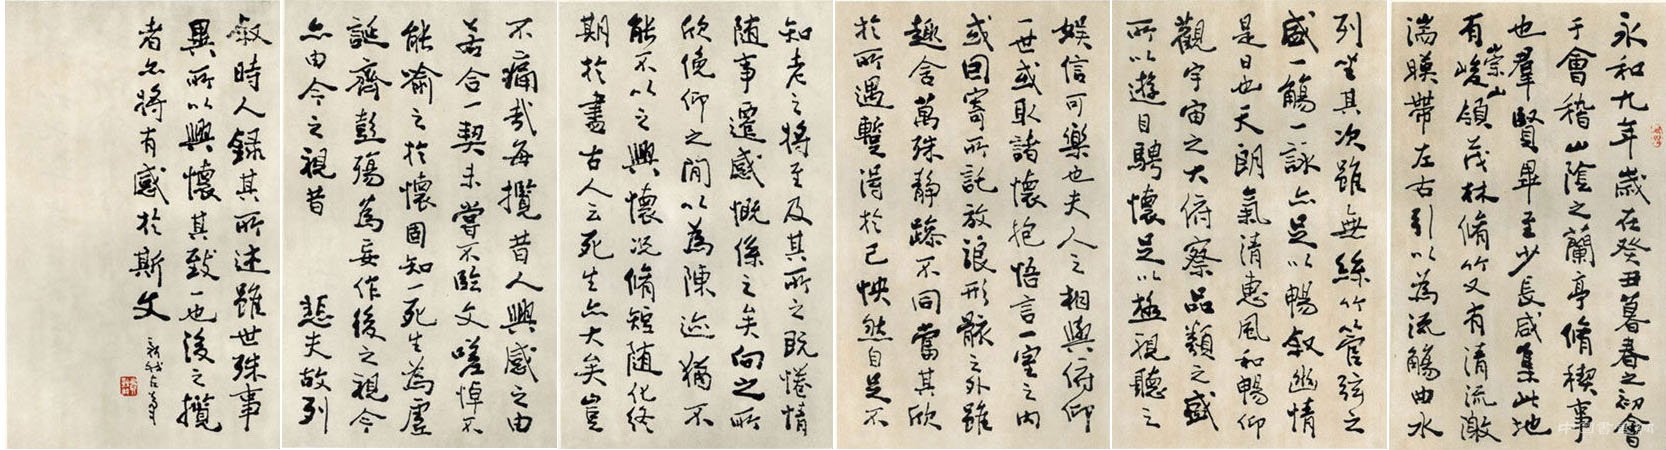 永和九年歲在癸丑暮春之初會
于會稽山陰之蘭亭脩稧事
也羣賢畢至少長咸集此地
有崇山峻領茂林脩竹又有清流激
湍暎帶左右引以為流觴曲水
列坐其次雖無絲竹管弦之
盛一觴一詠亦足以暢敘幽情
是日也天朗氣清惠風和暢仰
觀宇宙之大俯察品類之盛
所以遊目騁懷足以極視聽之
娛信可樂也夫人之相與俯仰
一世或取諸懷抱悟言一室之內
或因寄所託放浪形骸之外雖
趣舍萬殊靜躁不同當其欣
於所遇暫得於己怏然自足不
知老之將至及其所之既惓情
随事遷感慨係之矣向之所
欣俛仰之閒以為陳迹猶不
能不以之興懷況脩短随化終
期於盡古人云死生亦大矣豈
不痛哉每攬昔人興感之由
若合一契未嘗不臨文嗟悼不
能喻之於懷固知一死生為虛
誕齊彭殤為妄作後之視今
亦由今之視昔 悲夫故列
敘時人錄其所述雖世殊事
異所以興懷其致一也後之攬
者亦將有感於斯文